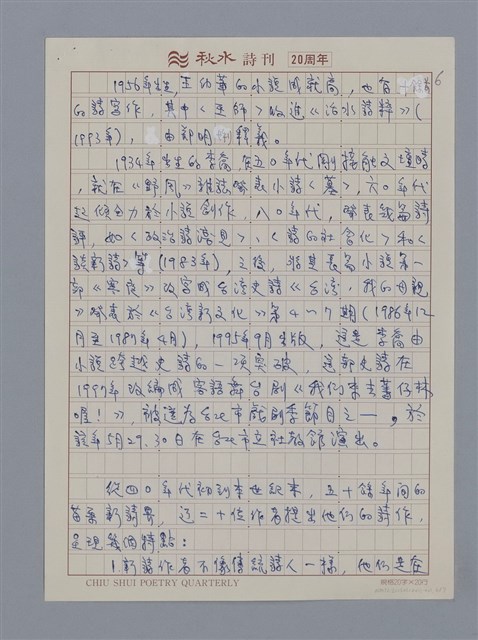 秋水詩刊 20周年
6
1956年出生,王幼華的小說成就高,也有
的詩寫作,其中《巫師》收進《治水詩粹》(
1993年), 由鄭明娳釋義。
1934年出生的李喬,在五0年代剛接觸文壇時
,就在《野風》雜誌發表小詩《墓》,六0年代
起傾全力於小說創作,八0年代,發表幾篇詩
評,如《政治詩淺見》、《詩的社會化》和《
談新詩》等(1983年),之後,將其長篇小說第一
部《寒夜》改寫成台灣史詩《台灣,我的母親
》發表於《台灣新文化》第4~7期(1986年12
月至1987年4月),1995年9月出版,這是李喬由
小說跨越史詩的一項突破,這部史詩在
1997年改編成客語舞台劇《我們來去蕃仔林
喔!》,被選為台北市戲劇季節目之一,於
該年5月29.30日在台北市立社教館演出。
從四0年代初到本世紀末,五十餘年間的
苗栗新詩界,近二十位作者提出他們的詩作,
呈現幾個特點:
1.新詩作者不像傳統詩人一樣,他們是在
CHIU SHUI POETRY QUARTERLY
稿紙20字×20行